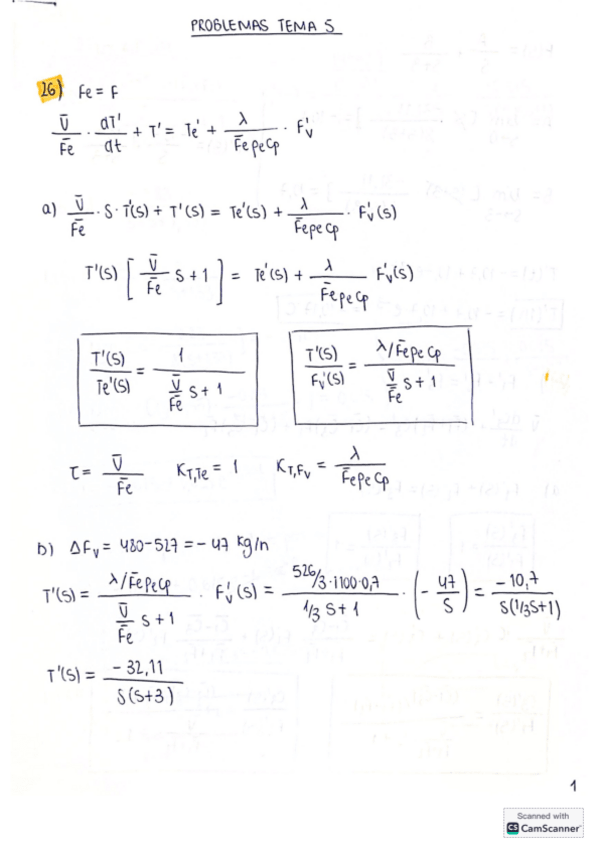 PROBLEMAS TEMA 5
26) Fe = F
V̄/F̄e · dT'/dt + T' = Te' + λ/F̄eρeCp · Fv'
a) V̄/F̄e · S · T'(S) + T'(S) = Te'(S) + λ/F̄eρeCp · Fv'(S)
T'(S) [ V̄/F̄e S + 1 ] = Te'(S) + λ/F̄eρeCp Fv'(S)
T'(S)/Te'(S) = 1/(V̄/F̄e S + 1)    T'(S)/Fv'(S) = (λ/F̄eρeCp)/(V̄/F̄e S + 1)
τ = V̄/F̄e    K_T,Te = 1    K_T,Fv = λ/F̄eρeCp
b) ΔFv = 480 - 527 = - 47 kg/h
T'(S) = (λ/F̄eρeCp)/(V̄/F̄e S + 1) · Fv'(S) = (526/3·1100·0,7)/(1/3 S + 1) · (- 47/S) = -10,7/S(1/3S+1)
T'(S) = - 32,11/S(S+3)
1
Scanned with
CS CamScanner